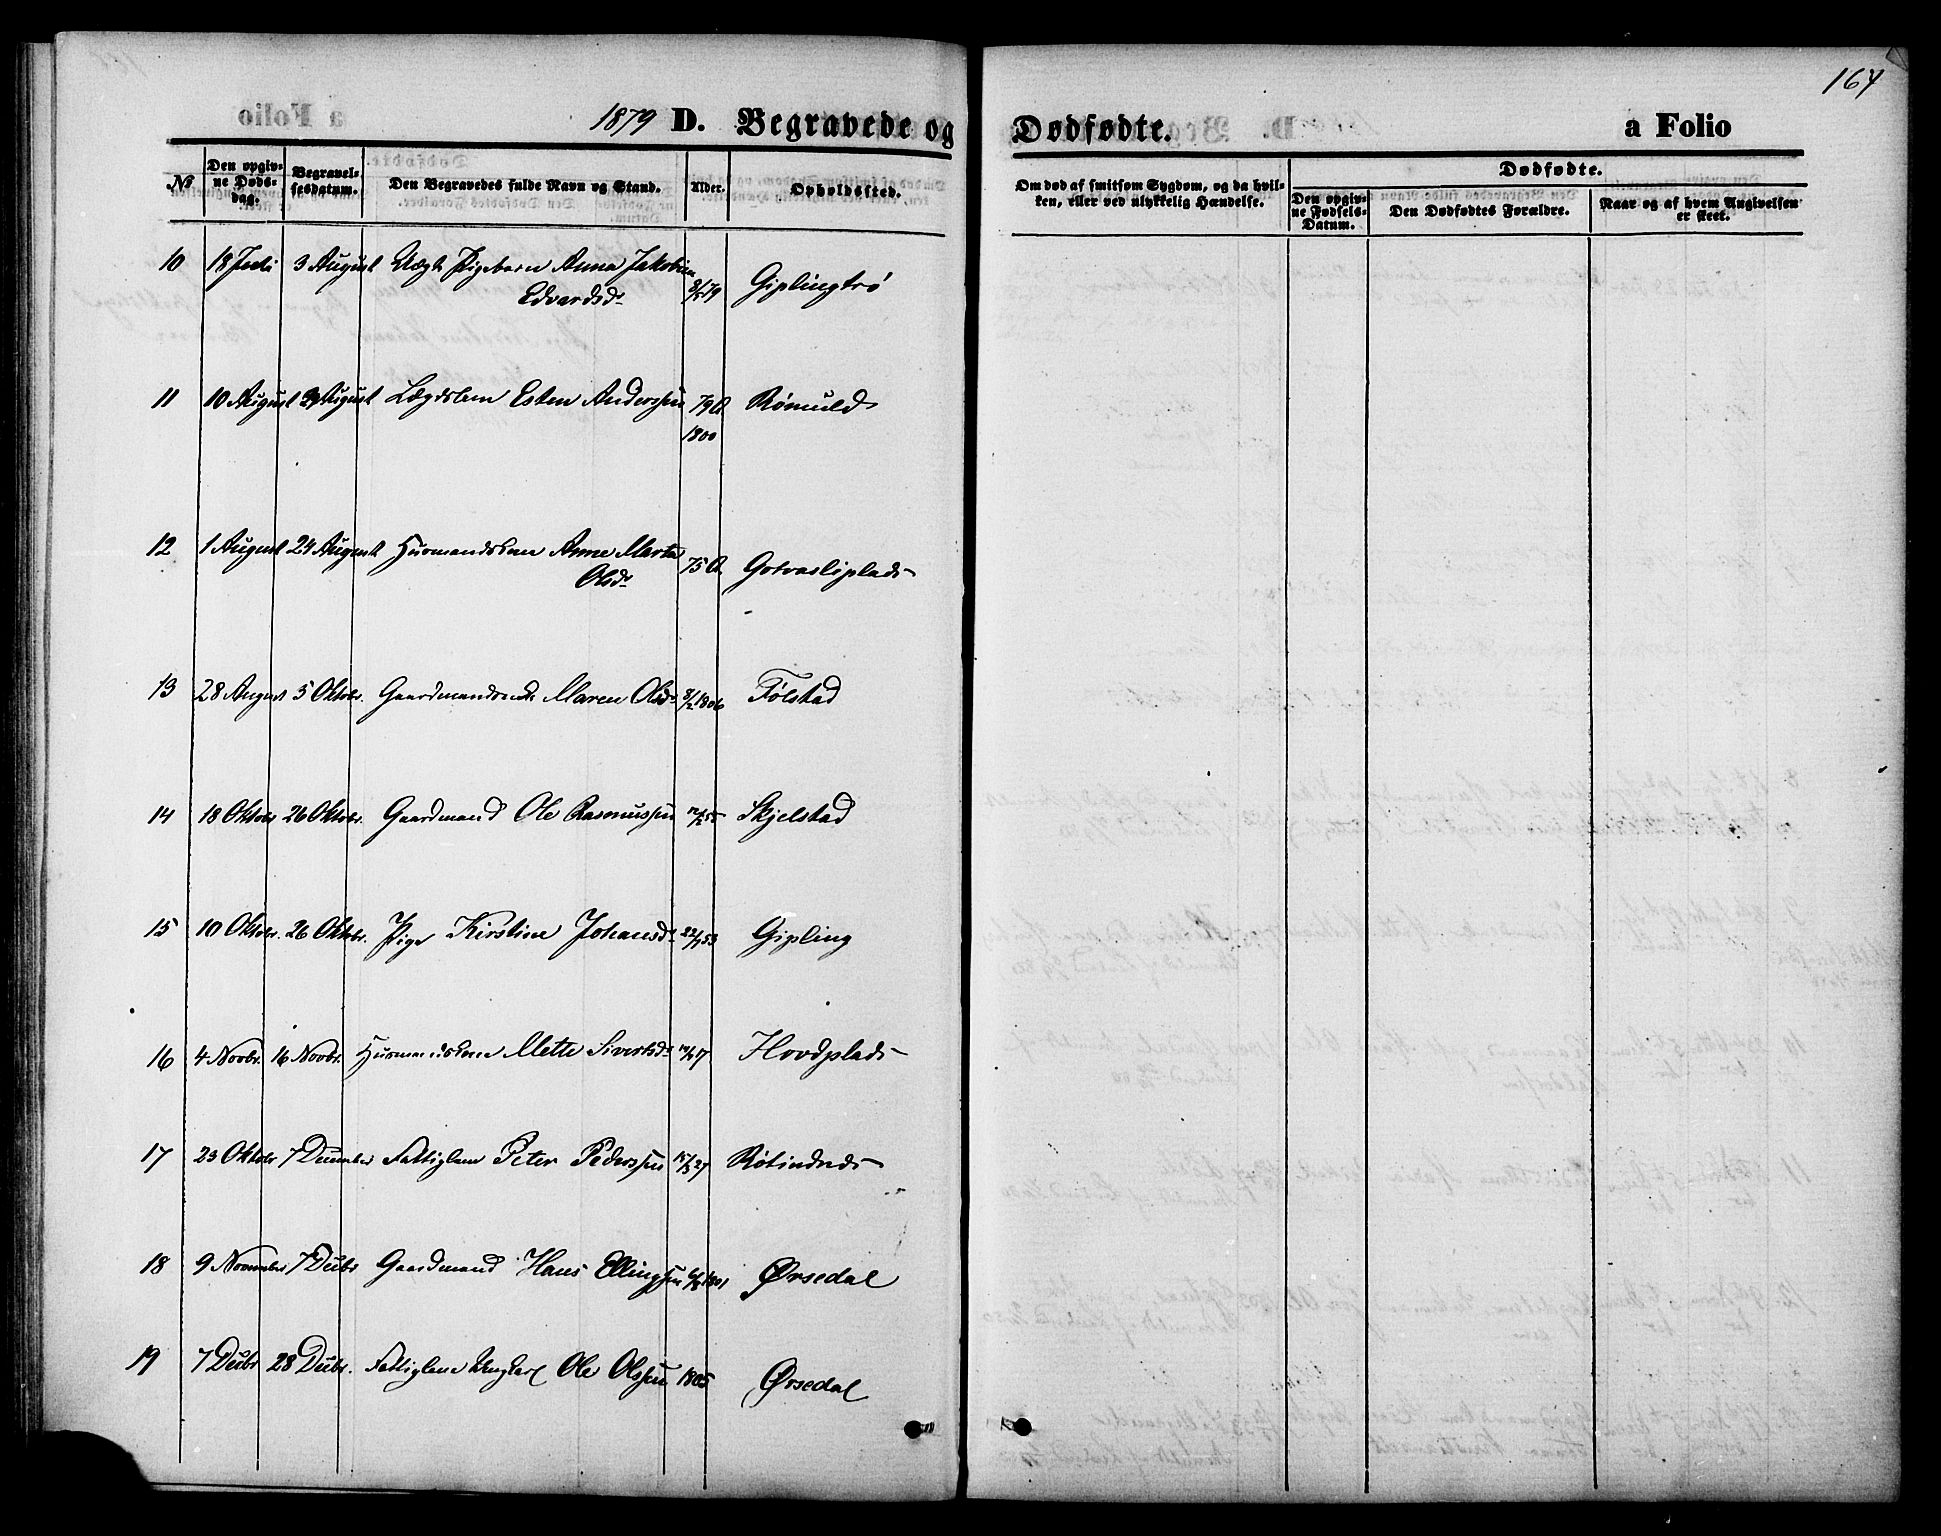 164
1879 D. Begravede og Dødfødte. a Folio
№ Den opgivne Dødsdag. Begravelsesdatum. Den Begravedes fulde Navn og Stand. Alder. Opholdssted. Om død af smitsom Sygdom, og da hvilken, eller ved ulykkelig Hændelse. Dødfødte.
Den opgivne Fødsels-Datum. Den Dødfødtes Forældre. Naar og af hvem Angivelsen er skeet.
10 18 Juli 3 August Uægte Pigebarn Anna Jakobine
Edvardsd. 79 Giplingtrø
11 10 August August Lægdslem Esten Anderssen 79 A. Rømuld
1800
12 1 August 24 August Husmandskone Anne Marta
Olsd. 75 A. Gotvasliplads
13 28 August 5 Oktobr. Gaardmandsenke Maren Olsd. 8/2 1806 Følstad
14 18 Oktobr 26 Oktobr. Gaardmand Ole Rasmussen 55 Skjelstad
15 10 Oktobr. 26 Oktobr. Pige Kirstine Johansd. 53 Gipling
16 4 Novbr. 16 Novbr. Husmandskone Mette Sivertsd. 17 Hovdplads
17 23 Oktobr 7 December Fattiglem Peter Pederssen 15/3 27
18 9 November 7 Decbr Gaardmand Hans Ellingsen 1801 Ørsedal
19 7 Decbr 28 Decbr. Fattiglem Ungkarl Ole Olssen 1805 Ørsedal